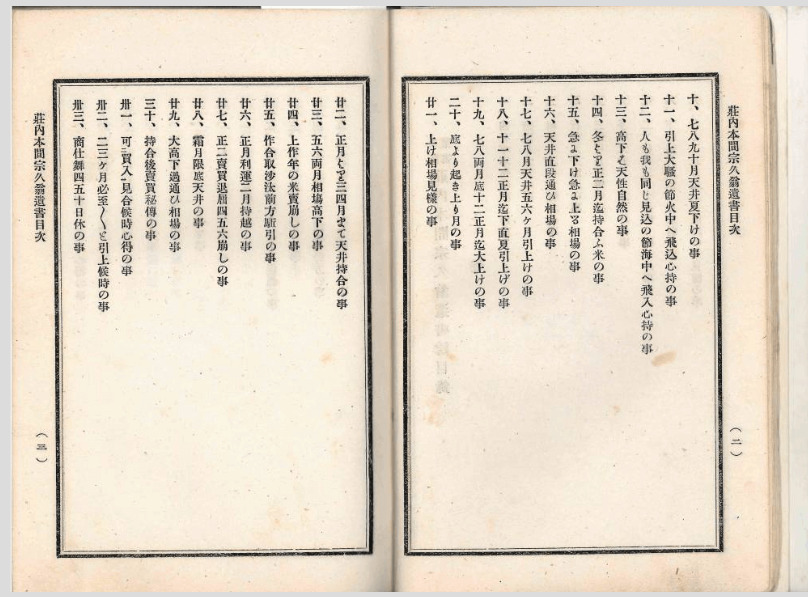 莊內本間宗久翁遺書目次
十、七八九十月天井夏下けの事
十一、引上大騷の節火中へ飛込心持の事
十二、人も我も同じ見込の節海中へ飛入心持の事
十三、高下は天性自然の事
十四、冬より正二月迄持合ふ米の事
十五、急に下け急に上る相場の事
十六、天井直段通ひ相場の事
十七、七八月天井五六ヶ月引上けの事
十八、十一十二正月迄下け直夏引上げの事
十九、七八両月底十二正月迄大上けの事
二十、底より起き上り月の事
廿一、上け相場見樣の事
(二)
廿二、正月より三四月まて天井持合の事
廿三、五六両月相場高下の事
廿四、上作年の米賣崩しの事
廿五、作合取沙汰前方駈引の事
廿六、正月利運二月持越の事
廿七、正二賣買退屈四五六崩しの事
廿八、霜月限底天井の事
廿九、大高下過通ひ相場の事
三十、持合後賣買秘傳の事
卅一、可買入見合候時心得の事
卅二、二三ヶ月必至〱と引上候時の事
卅三、商仕舞四五十日休の事
莊內本間宗久翁遺書目次
(三)